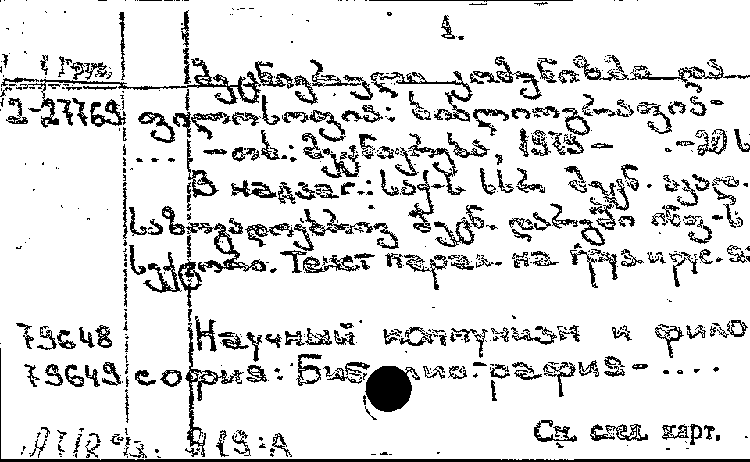 1.
Груз.
მეცნიერული კომუნიზმი და
2-27769 ფილოსოფია: ბიბლიოგრაფია-
.... -თბ.: მეცნიერება, 1975- .-20 ს
В надзаг.: საქ-ს სსრ მეცნ. აკად.
საზოგადოებრივ მეცნ. დარგში ინფ-ს
სექტორი. Текст парал. на груз. и рус. яз
79648 Научный коммунизм и фило
79649 софия: Библиография- ....
См. след. карт.